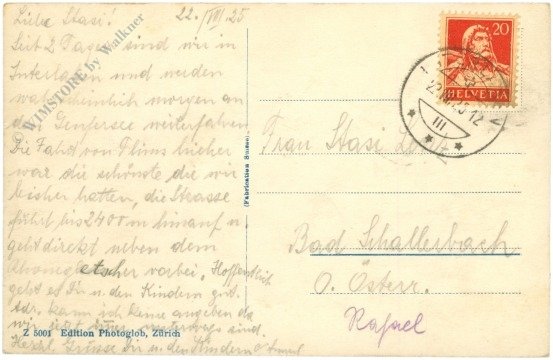 22./VIII.25
Liebe Stasi!
Seit 2 Tagen sind wir in
Interlaken und werden
wahrscheinlich morgen an
den Genfersee weiterfahren
Die Fahrt von Flims hieher
war die schönste die wir
bisher hatten, die Strasse
führt bis 2400 m hinauf u
geht direkt neben dem
Rhonegletscher vorbei. Hoffentlich
geht es Dir u den Kindern gut.
Adr. kann ich keine angeben da
wir jetzt immer unterwegs sind.
Herzl. Grüsse Dir u den Kindern
WIMSTORE by Walkner
Z 5001 Edition Photoglob, Zürich
(Fabrication Suisse)
20
HELVETIA
III
Frau Stasi
Bad Schallerbach
O. Österr.
Rafael